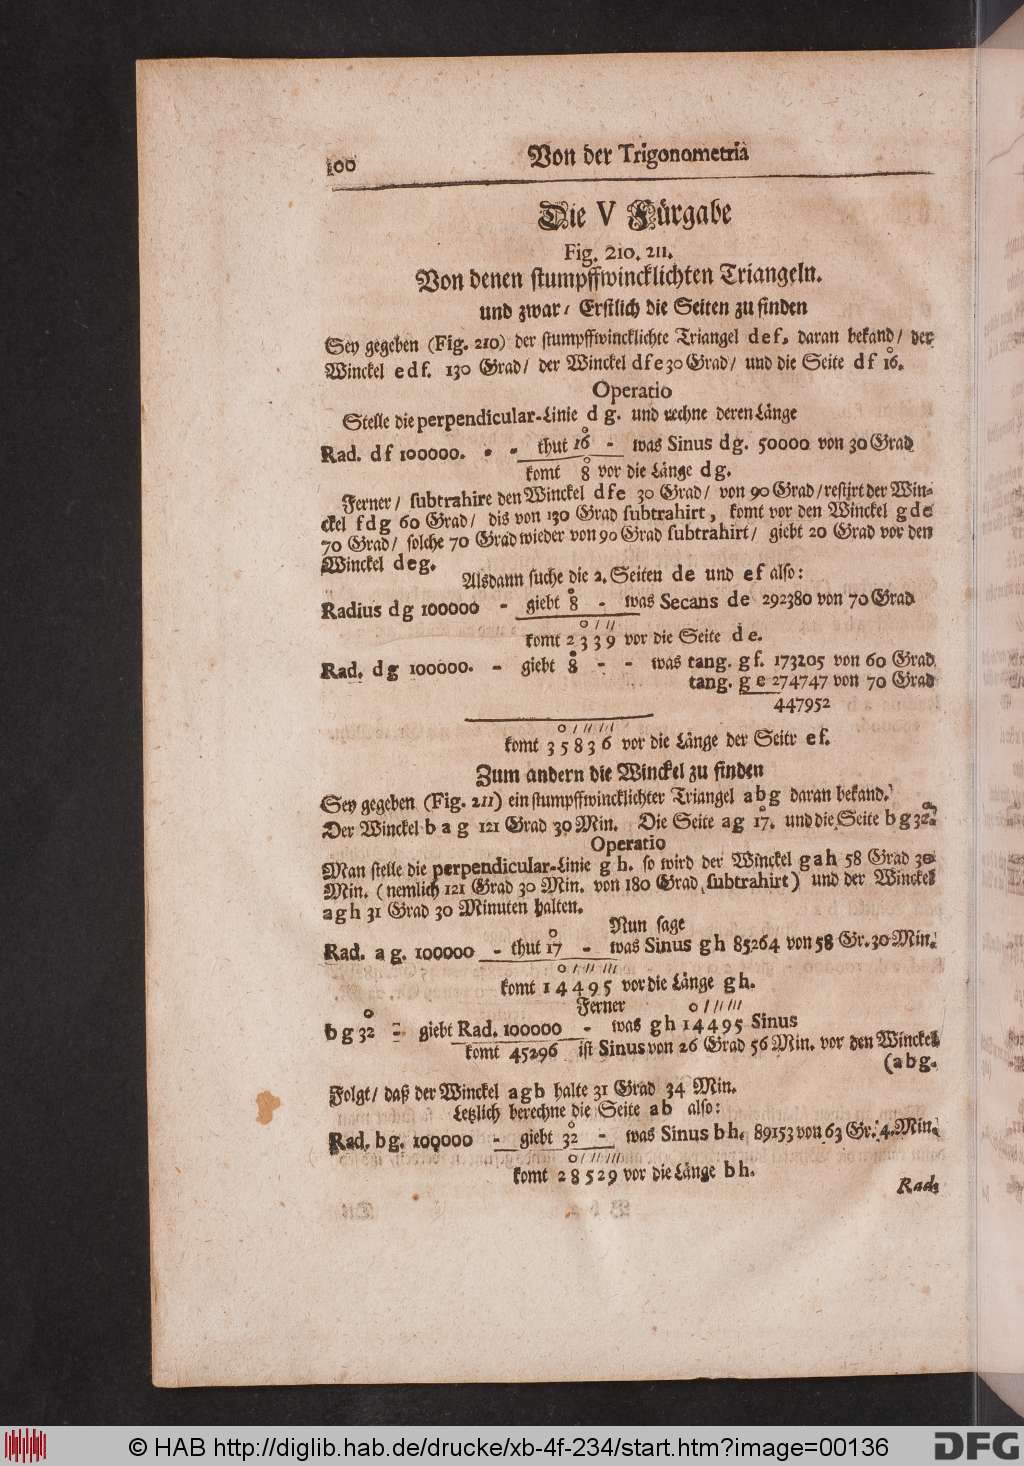 100
Von der Trigonometria
Die V Fürgabe
Fig. 210. 211.
Von denen stumpffwincklichten Triangeln.
und zwar/ Erstlich die Seiten zu finden
Sey gegeben (Fig. 210) der stumpffwincklichte Triangel def, daran bekand/ der
Winckel edf. 130 Grad/ der Winckel dfe 30 Grad/ und die Seite df 16.
Operatio
Stelle die perpendicular-Linie dg. und rechne deren Länge
Rad. df 100000. - - thut 16 - was Sinus dg. 50000 von 30 Grad
komt 8 vor die Länge dg.
Ferner/ subtrahire den Winckel dfe 30 Grad/ von 90 Grad/ restirt der Win-
ckel fdg 60 Grad/ dis von 130 Grad subtrahirt, komt vor den Winckel gde
70 Grad/ solche 70 Grad wieder von 90 Grad subtrahirt/ giebt 20 Grad vor den
Winckel deg.
Alsdann suche die 2. Seiten de und ef also:
Radius dg 100000 - giebt 8 - was Secans de 292380 von 70 Grad
0 / //
komt 2339 vor die Seite de.
Rad. dg 100000. - giebt 8 - - was tang. gf. 173205 von 60 Grad
tang. ge 274747 von 70 Grad
447952
0 / // ///
komt 35836 vor die Länge der Seitr ef.
Zum andern die Winckel zu finden
Sey gegeben (Fig. 211) ein stumpffwincklichter Triangel abg daran bekand.
Der Winckel bag 121 Grad 30 Min. Die Seite ag 17. und die Seite bg 32.
Operatio
Man stelle die perpendicular-Linie gh. so wird der Winckel gah 58 Grad 30
Min. (nemlich 121 Grad 30 Min. von 180 Grad subtrahirt) und der Winckel
agh 31 Grad 30 Minuten halten.
Nun sage
Rad. ag. 100000 - thut 17 - was Sinus gh 85264 von 58 Gr. 30 Min.
0 / // ///
komt 14495 vor die Länge gh.
Ferner 0 / // ///
bg 32 - giebt Rad. 100000 - was gh 14495 Sinus
komt 45296 ist Sinus von 26 Grad 56 Min. vor den Winckel
(abg.
Folgt/ daß der Winckel agb halte 31 Grad 34 Min.
Letzlich berechne die Seite ab also:
Rad. bg. 100000 - giebt 32 - was Sinus bh. 89153 von 63 Gr. 4. Min.
0 / // ///
komt 28529 vor die Länge bh.
Rad.
© HAB http://diglib.hab.de/drucke/xb-4f-234/start.htm?image=00136
DFG